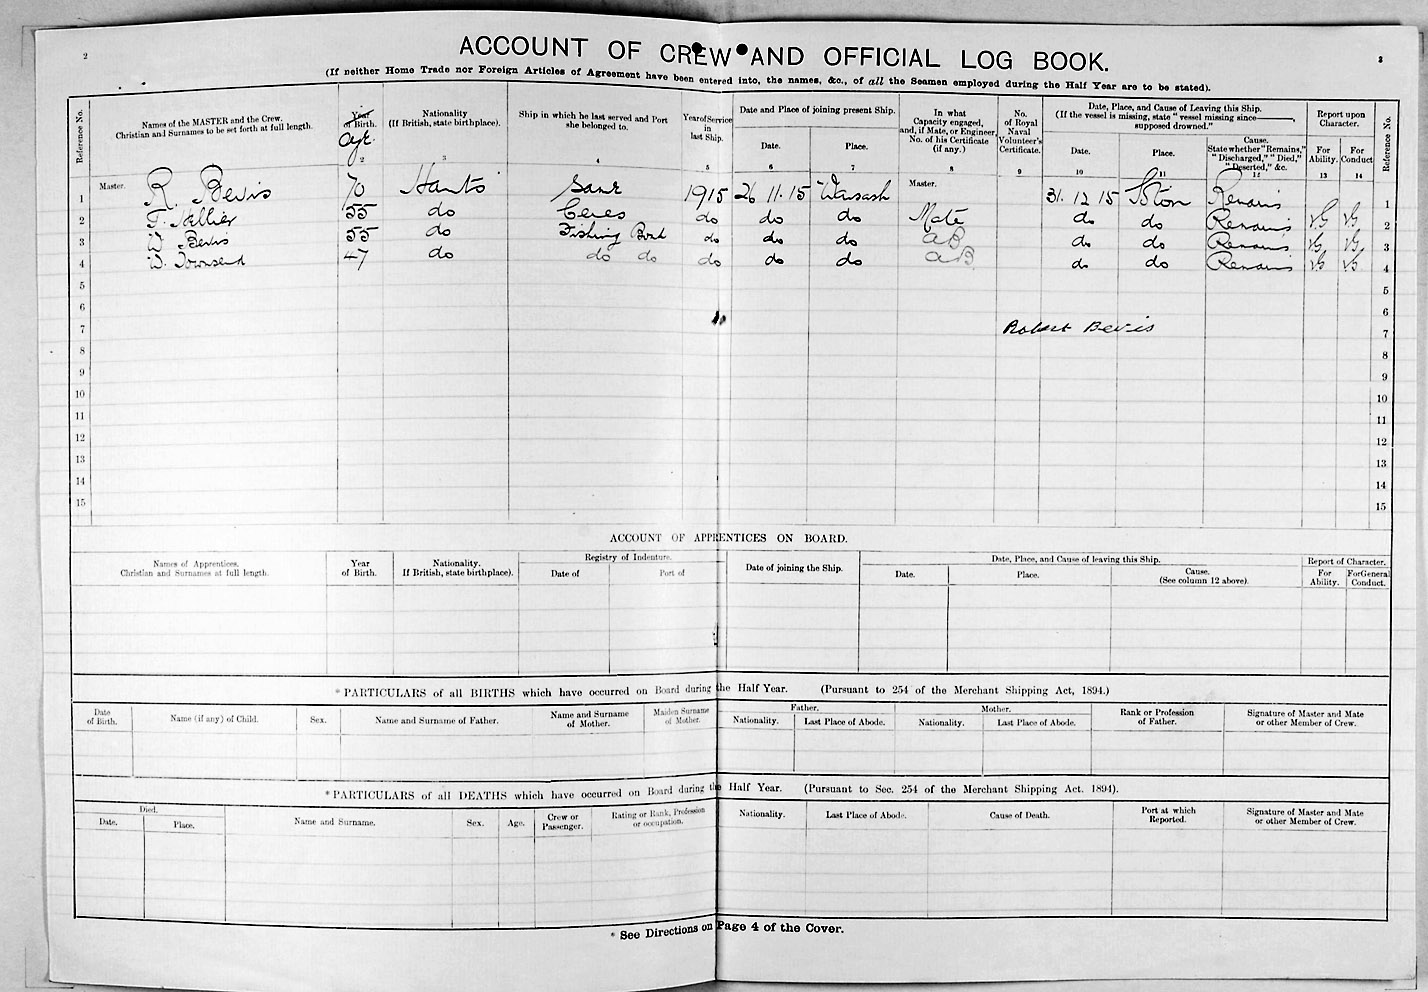 2
3
ACCOUNT OF CREW AND OFFICIAL LOG BOOK.
(If neither Home Trade nor Foreign Articles of Agreement have been entered into, the names, &c., of all the Seamen employed during the Half Year are to be stated).
Reference No. | Names of the MASTER and the Crew. Christian and Surnames to be set forth at full length. | Year of Birth. Age. 2 | Nationality (If British, state birthplace). 3 | Ship in which he last served and Port she belonged to. 4 | Year of Service in last Ship. 5 | Date and Place of joining present Ship. Date. 6 | Place. 7 | In what Capacity engaged, and, if Mate, or Engineer, No. of his Certificate (if any.) 8 | No. of Royal Naval Volunteer's Certificate. 9 | Date, Place, and Cause of Leaving this Ship. (If the vessel is missing, state "vessel missing since———, supposed drowned." Date. 10 | Place. 11 | Cause. State whether "Remains," "Discharged," "Died," "Deserted," &c. 12 | Report upon Character. For Ability. 13 | For Conduct 14 | Reference No.
1 Master. R. Bevis 70 Hants Same 1915 26 11. 15 Warsash Master. 31. 12 15 Soton Remains 1
2 55 do Ceres do do do Mate do do Remains VG VG 2
3 W Bevis 55 do Fishing Boat do do do AB do do Remains VG VG 3
4 W. Townsend 47 do do do do do do AB do do Remains VG VG 4
5 5
6 6
7 Robert Bevis 7
8 8
9 9
10 10
11 11
12 12
13 13
14 14
15 15
ACCOUNT OF APPRENTICES ON BOARD.
Names of Apprentices. Christian and Surnames at full length. | Year of Birth. | Nationality. If British, state birthplace). | Registry of Indenture. Date of | Port of | Date of joining the Ship. | Date, Place, and Cause of leaving this Ship. Date. | Place. | Cause. (See column 12 above). | Report of Character. For Ability. | For General Conduct.
* PARTICULARS of all BIRTHS which have occurred on Board during the Half Year. (Pursuant to 254 of the Merchant Shipping Act, 1894.)
Date of Birth. | Name (if any) of Child. | Sex. | Name and Surname of Father. | Name and Surname of Mother. | Maiden Surname of Mother. | Father. Nationality. | Last Place of Abode. | Mother. Nationality. | Last Place of Abode. | Rank or Profession of Father. | Signature of Master and Mate or other Member of Crew.
* PARTICULARS of all DEATHS which have occurred on Board during the Half Year. (Pursuant to Sec. 254 of the Merchant Shipping Act. 1894).
Died. Date. | Place. | Name and Surname. | Sex. | Age. | Crew or Passenger. | Rating or Rank, Profession or occupation. | Nationality. | Last Place of Abode. | Cause of Death. | Port at which Reported. | Signature of Master and Mate or other Member of Crew.
* See Directions on Page 4 of the Cover.